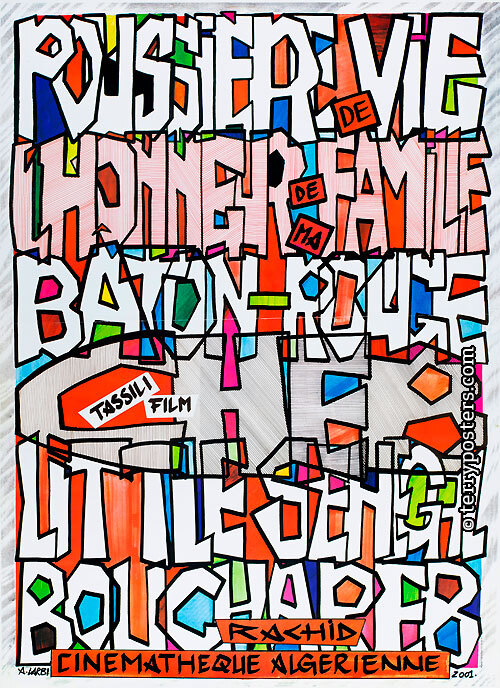 POUSSIERE DE VIE
L'HONNEUR DE MA FAMILLE
BATON-ROUGE
CHEB
TASSILI FILM
LITTLE SENEGAL
BOUCHAREB
RACHID
CINEMATHEQUE ALGERIENNE
A. LARBI 2001.
©terryposters.com